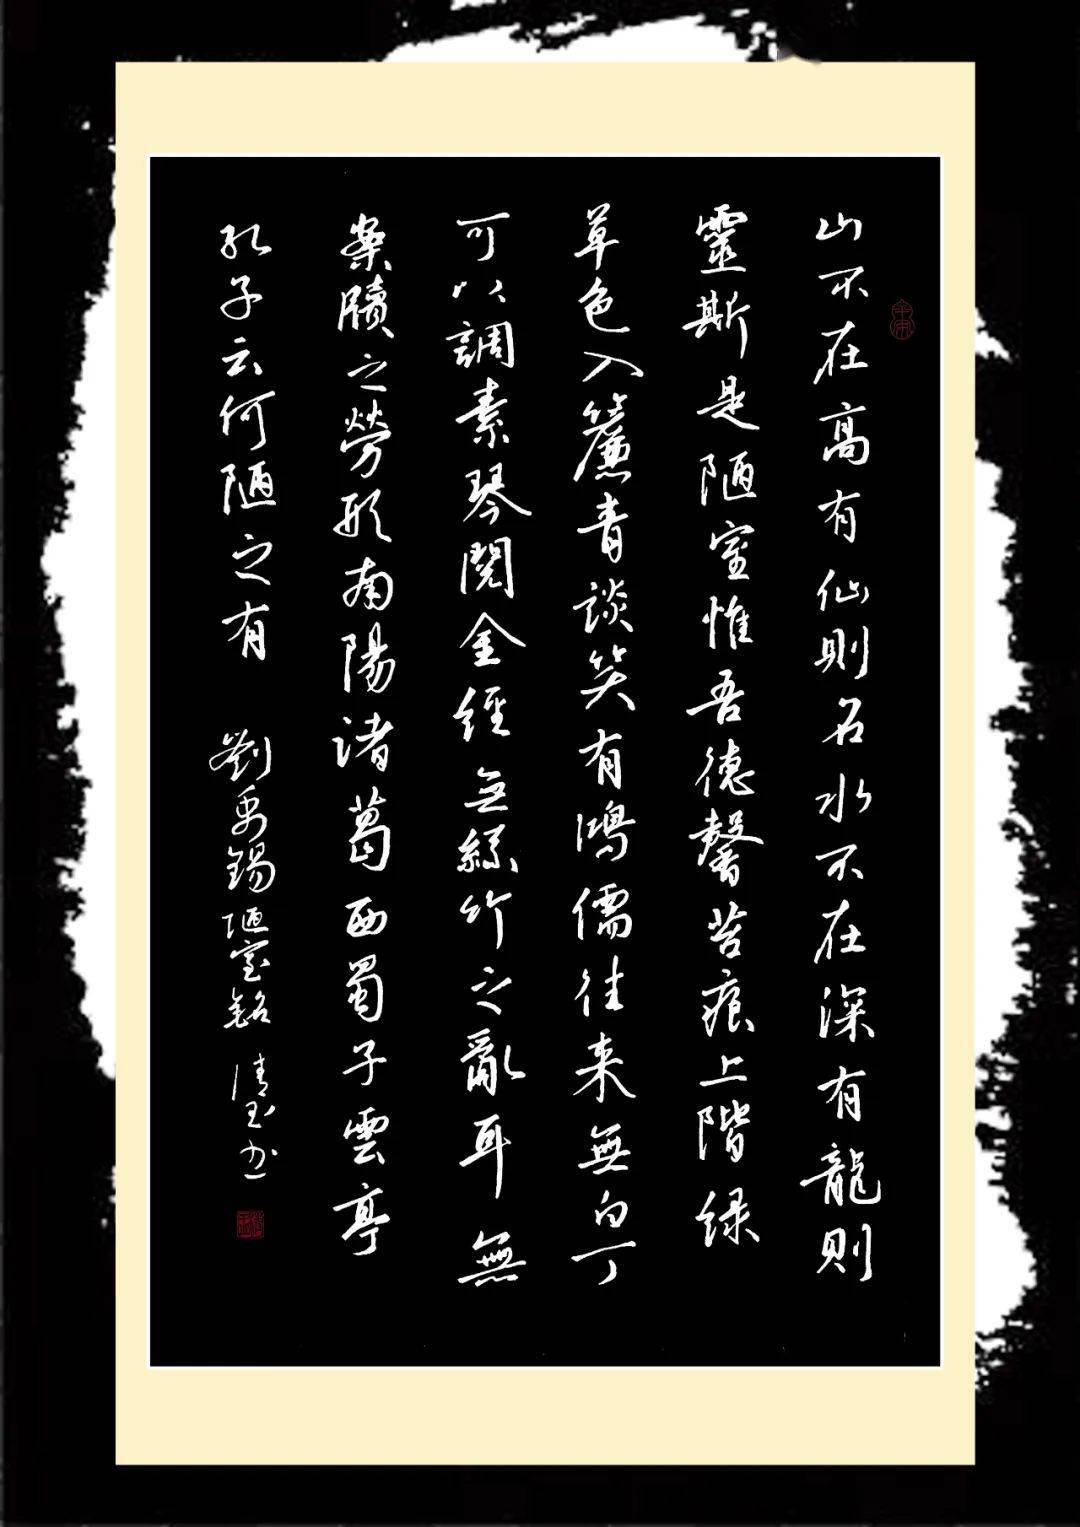 山不在高有仙則名水不在深有龍則
靈斯是陋室惟吾德馨苔痕上階绿
草色入簾青談笑有鴻儒往来無白丁
可以調素琴閱金經无絲竹之亂耳無
案牘之勞形南陽诸葛西蜀子雲亭
孔子云何陋之有 劉禹錫陋室銘 清玉书